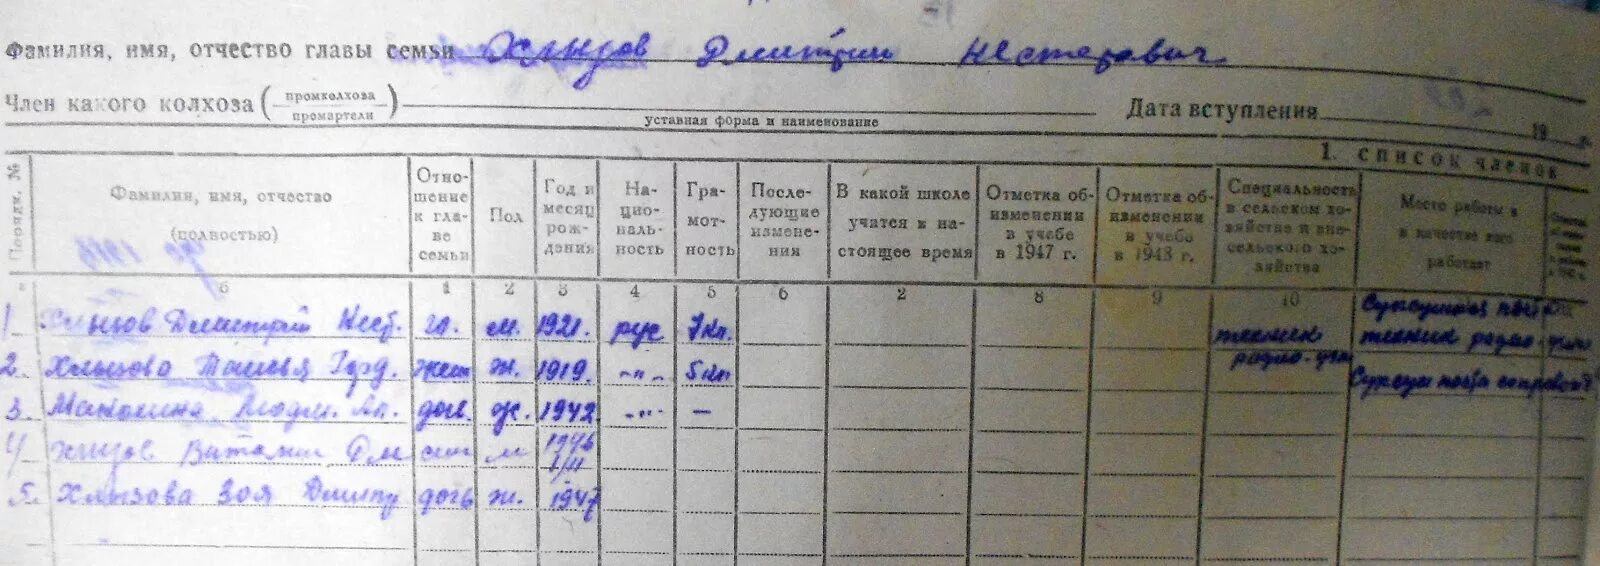 Фамилия, имя, отчество главы семьи Хлызов Дмитрий Нестерович
Член какого колхоза (промколхоза промартели) Дата вступления 19 г.
уставная форма и наименование
1. список членов
Порядк. №
Фамилия, имя, отчество (полностью)
Отношение к главе семьи
Пол
Год и месяц рождения
Национальность
Грамотность
Последующие изменения
В какой школе учатся в настоящее время
Отметка об изменении в учебе в 1947 г.
Отметка об изменении в учебе в 1943 г.
Специальность в сельском хозяйстве и вне сельского хозяйства
Место работы и в качестве кого работает
б 1 2 3 4 5 6 2 8 9 10
1. Дмитрий Нест. гл. м. 1921. рус 7кл. техник радио-узл техник радио-узла
2. Хлызова Гурд. жен ж. 1919. -"- 5 кл
3. Людм. доч. ж. 1942 -"- —
4 Хлызов Виталий Дм сын м 1946 1/II
5. Хлызова Зоя Дмитр дочь ж. 1947